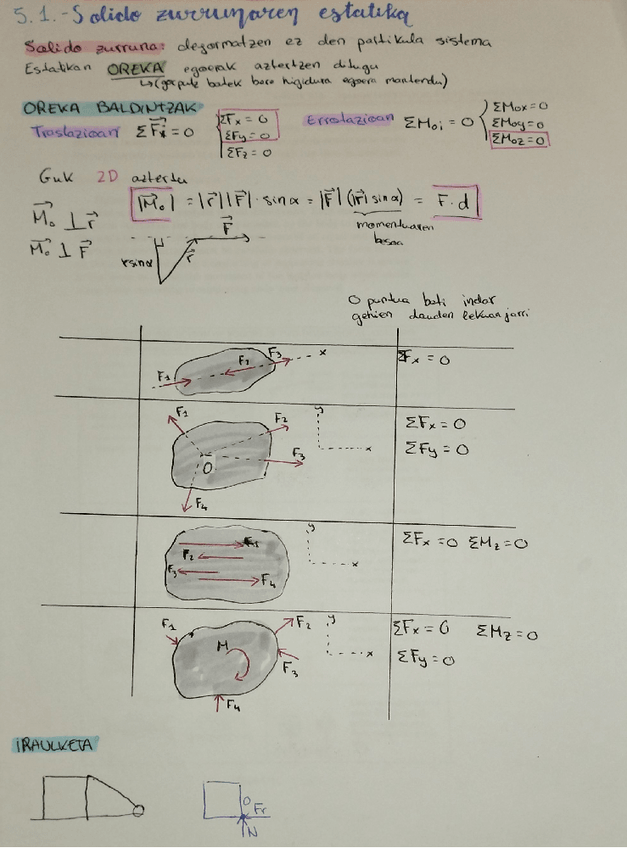 5.1.- Solido zurrunaren estatika
Solido zurruna: deformatzen ez den partikula sistema
Estatikan OREKA egoerak aztertzen ditugu
↳ (gorputz batek bere higidura egoera mantendu)
OREKA BALDINTZAK
Traslazioan ΣF⃗i = 0 { ΣFx = 0 ΣFy = 0 ΣFz = 0
Errotazioan ΣMoi = 0 { ΣMox = 0 ΣMoy = 0 ΣMoz = 0
Guk 2D aztertu
M⃗o ⊥ r⃗
M⃗o ⊥ F⃗
|M⃗o| = |r⃗||F⃗| · sinα = |F⃗| (|r⃗| sinα) = F · d
momentuaren besoa
F⃗
r sinα r⃗
O puntua beti indar
gehien dauden lekuan jarri
F1 F2 F3 x ΣFx = 0
F1 F2 F3 F4 O y x ΣFx = 0
ΣFy = 0
F1 F2 F3 F4 y x ΣFx = 0 ΣMz = 0
F1 F2 F3 F4 M y x ΣFx = 0 ΣMz = 0
ΣFy = 0
IRAULKETA
O Fr
N